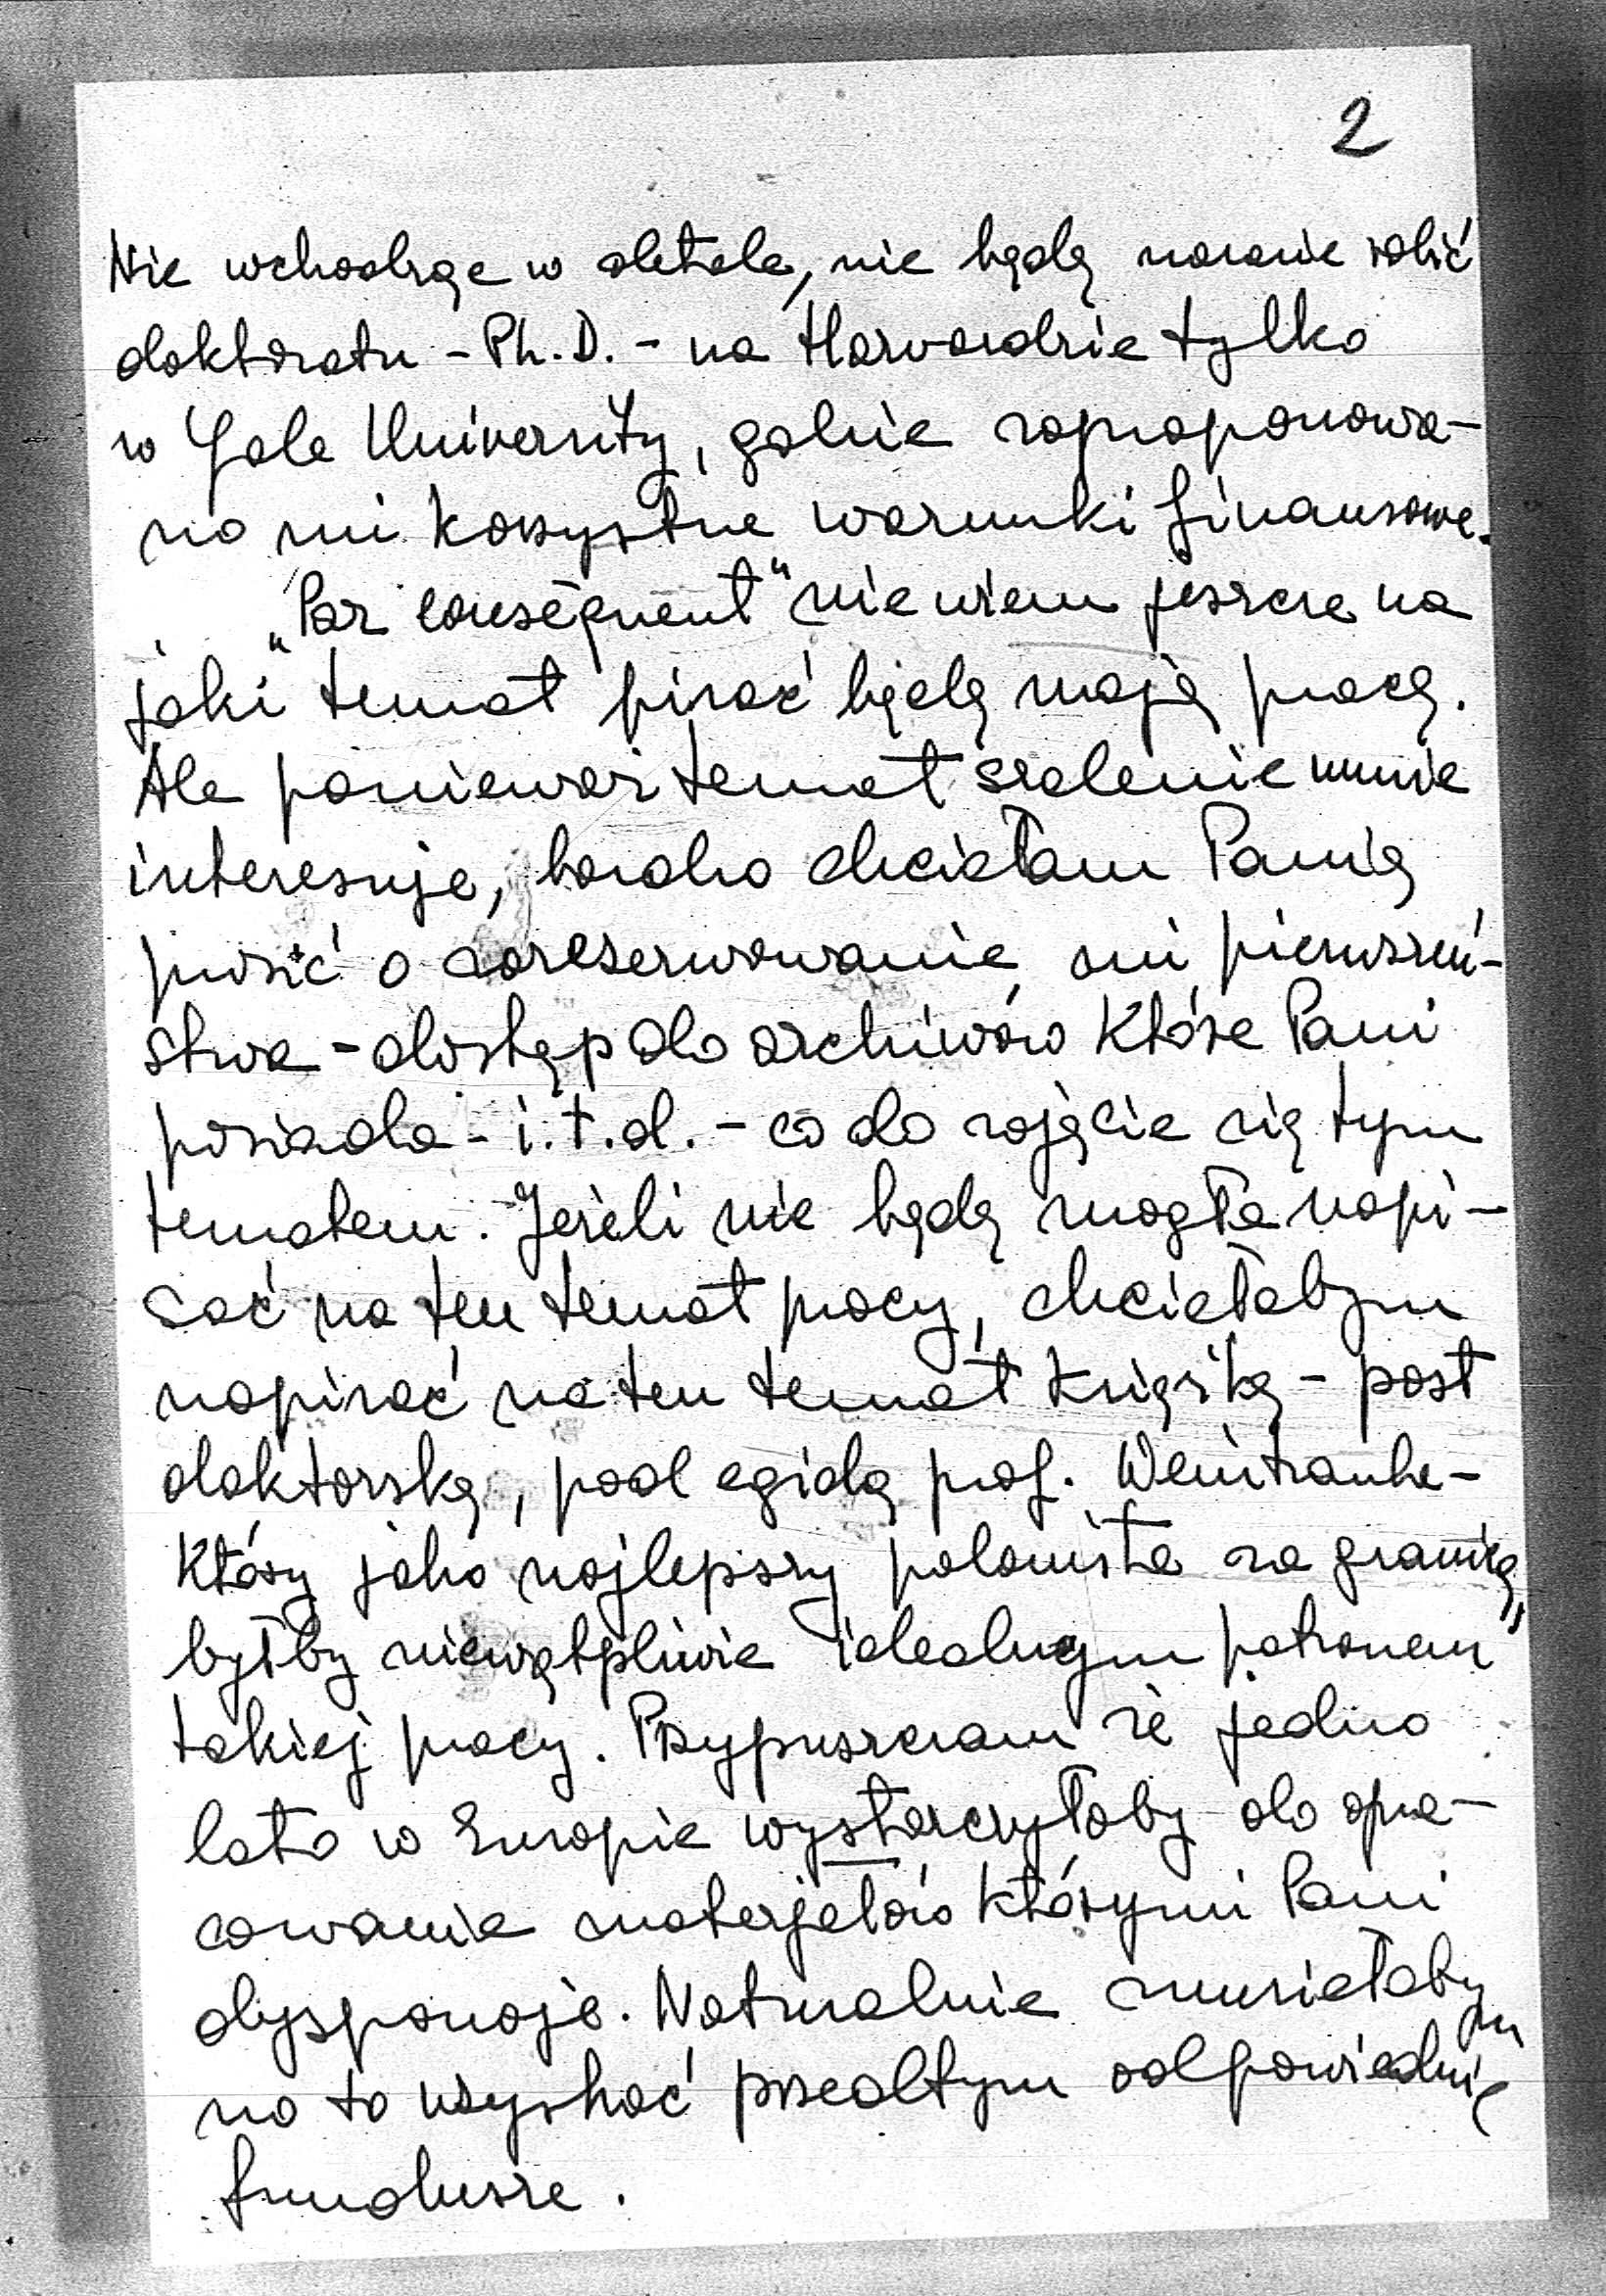 2
Nie wchodząc w detale, nie będę narazie robić
doktoratu - Ph.D. - na Harvardzie tylko
w Yale University, gdzie zaproponowa-
no mi korzystne warunki finansowe.
„Par conséquent" nie wiem jeszcze na
jaki temat pisać będę moją pracę.
Ale ponieważ temat szalenie mnie
interesuje, bardzo chciałam Panią
prosić o zarezerwowanie mi pierwszeń-
stwa - dostęp do archiwów które Pani
posiada - i.t.d. - co do zajęcia się tym
tematem. Jeżeli nie będę mogła napi-
sać na ten temat pracy, chciałabym
napisać na ten temat książkę - post
doktorską, pod egidą prof. Weintrauba -
który jako najlepszy polonista za granicą,
byłby niewątpliwie idealnym „patronem"
takiej pracy. Przypuszczam że jedno
lato w Europie wystarczyłoby do opra-
cowania materjałów którymi Pani
dysponuje. Naturalnie musiałabym
na to uzyskać przedtym odpowiednie
fundusze.